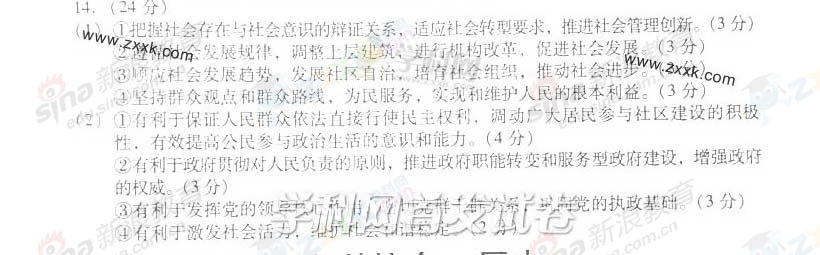 14. (24 分)
(1) ①把握社会存在与社会意识的辩证关系，适应社会转型要求，推进社会管理创新。(3 分)
②遵循社会发展规律，调整上层建筑，进行机构改革，促进社会发展。(3 分)
③顺应社会发展趋势，发展社区自治，培育社会组织，推动社会进步。(3 分)
④坚持群众观点和群众路线，为民服务，实现和维护人民的根本利益。(3 分)
(2) ①有利于保证人民群众依法直接行使民主权利，调动广大居民参与社区建设的积极
性，有效提高公民参与政治生活的意识和能力。(4 分)
②有利于政府贯彻对人民负责的原则，推进政府职能转变和服务型政府建设，增强政府
的权威。(3 分)
③有利于发挥党的领导 党的执政基础。(3 分)
④有利于激发社会活力，维护社会和谐稳定。(3 分)
www.zxxk.com
www.zxxk.com
学科网首发试卷
sina 新浪教育